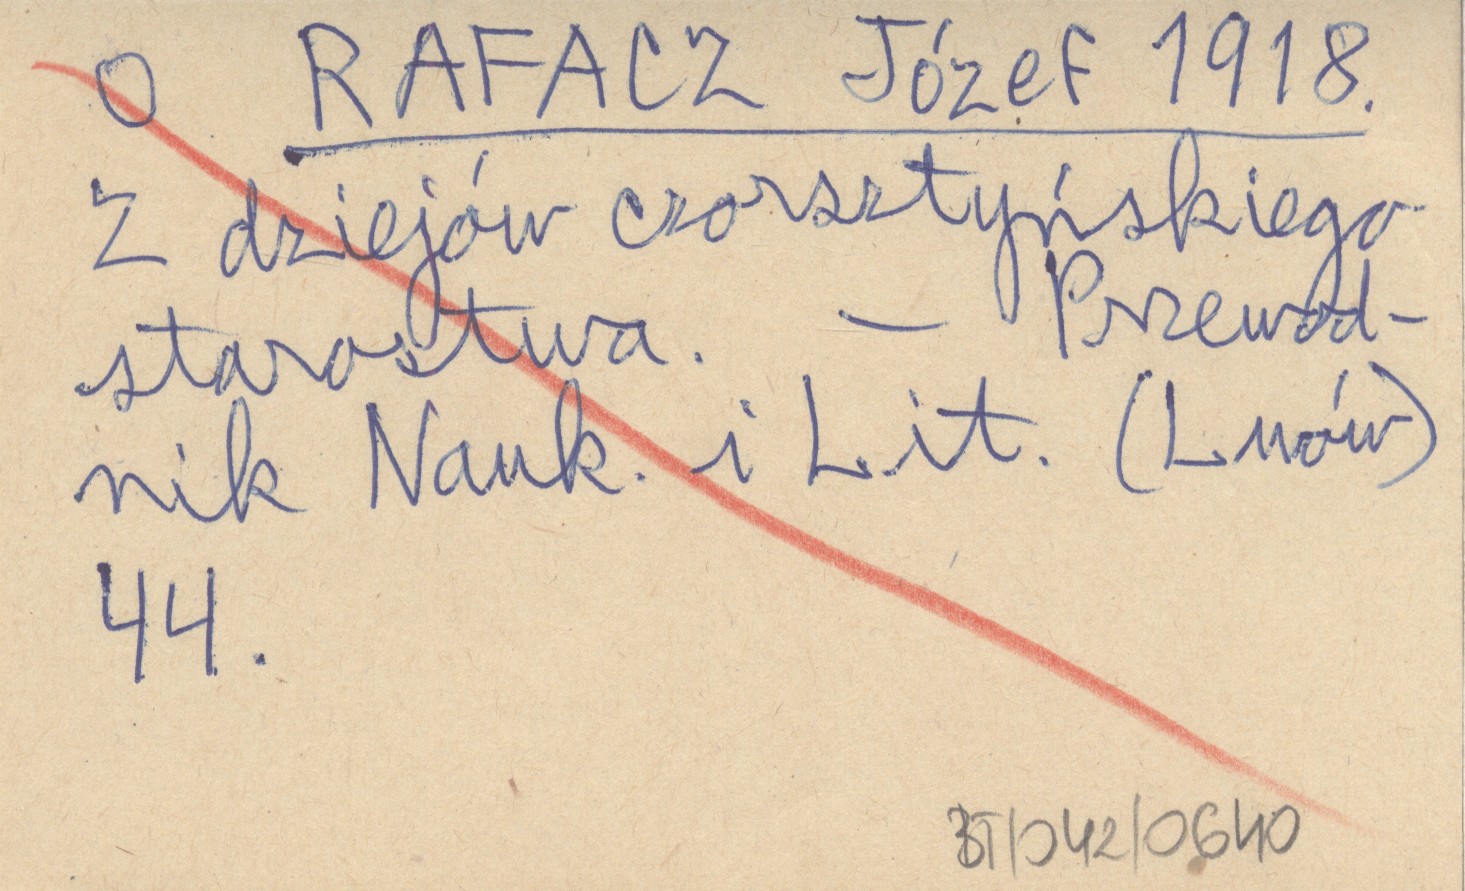 O RAFACZ Józef 1918.
Z dziejów czorsztyńskiego
starostwa. — Przewod-
nik Nauk. i Lit. (Lwów)
44.
BT/042/0640